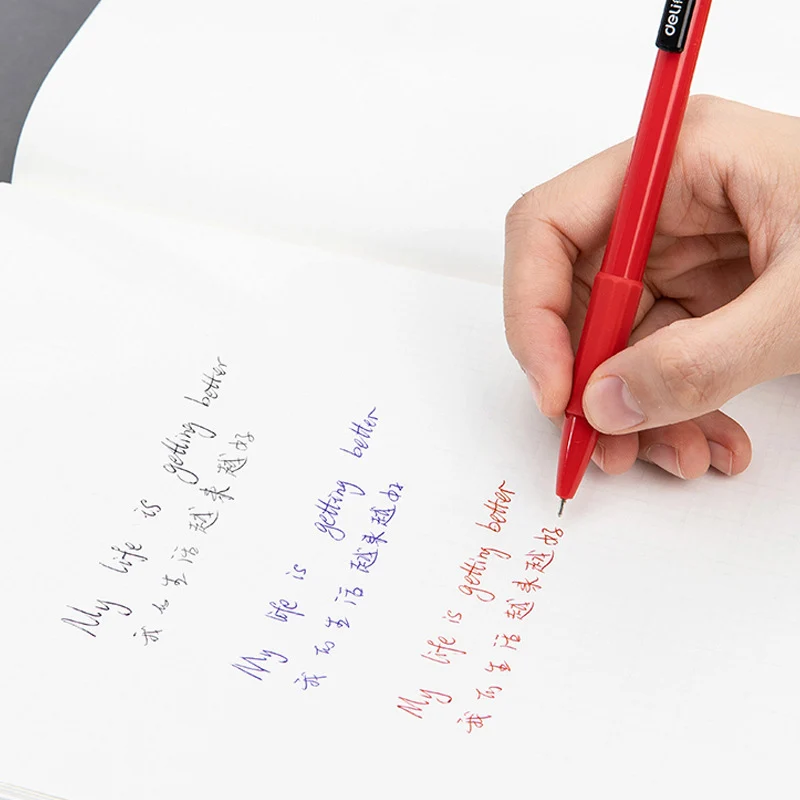 deli
My life is getting better
我的生活越来越好
My life is getting better
我的生活越来越好
My life is getting better
我的生活越来越好